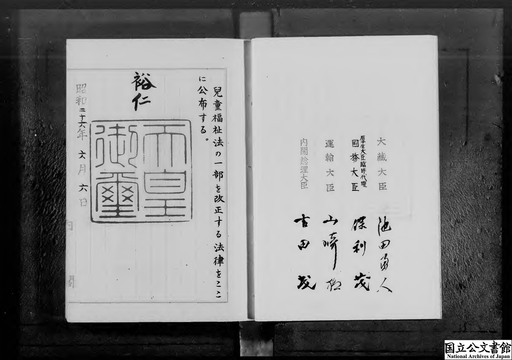 大藏大臣 池田勇人
厚生大臣臨時代理
國務大臣 保利茂
運輸大臣 山崎猛
内閣総理大臣 吉田茂
兒童福祉法の一部を改正する法律をここ
に公布する。
裕仁
天皇
御璽
昭和二十六年六月六日
内閣
国立公文書館
National Archives of Japan